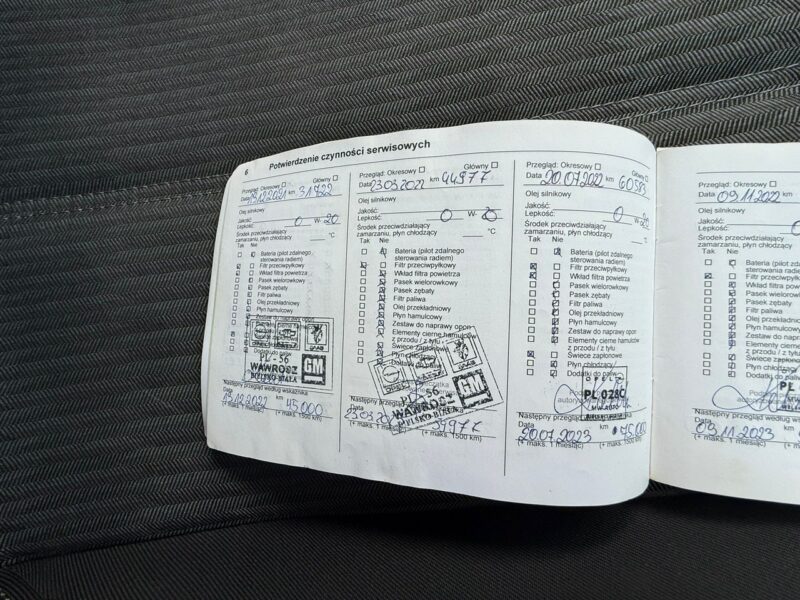 6 Potwierdzenie czynności serwisowych
Przegląd: Okresowy Główny
Data 13.12.2021 km 31722
Olej silnikowy
Jakość:
Lepkość: 0 W- 20
Środek przeciwdziałający
zamarzaniu, płyn chłodzący °C
Tak Nie
Bateria (pilot zdalnego
sterowania radiem)
Filtr przeciwpyłkowy
Wkład filtra powietrza
Pasek wielorowkowy
Pasek zębaty
Filtr paliwa
Olej przekładniowy
Płyn hamulcowy
Zestaw do naprawy opon
Dodatki do paliw
PL - 56
WAWROSZ
BIELSKO-BIAŁA
GM
Następny przegląd według wskaźnika
Data km
13.12.2022 45000
(+ maks. 1 miesiąc) (+ maks. 1500 km)
Przegląd: Okresowy Główny
Data 23.03.2022 km 44977
Olej silnikowy
Jakość:
Lepkość: 0 W- 20
Środek przeciwdziałający
zamarzaniu, płyn chłodzący °C
Tak Nie
Bateria (pilot zdalnego
sterowania radiem)
Filtr przeciwpyłkowy
Wkład filtra powietrza
Pasek wielorowkowy
Pasek zębaty
Filtr paliwa
Olej przekładniowy
Płyn hamulcowy
Zestaw do naprawy opon
Elementy cierne hamulców
z przodu / z tyłu
Świece zapłonowe
Płyn chłodzący
Dodatki do paliw
PL - 56
WAWROSZ
BIELSKO-BIAŁA
GM
Następny przegląd według wskaźnika
Data km
(+ maks. 1 miesiąc) (+ maks. 1500 km)
Przegląd: Okresowy Główny
Data 20.07.2022 km 60583
Olej silnikowy
Jakość:
Lepkość: 0 W- 20
Środek przeciwdziałający
zamarzaniu, płyn chłodzący °C
Tak Nie
Bateria (pilot zdalnego
sterowania radiem)
Filtr przeciwpyłkowy
Wkład filtra powietrza
Pasek wielorowkowy
Pasek zębaty
Filtr paliwa
Olej przekładniowy
Płyn hamulcowy
Zestaw do naprawy opon
Elementy cierne hamulców
z przodu / z tyłu
Świece zapłonowe
Płyn chłodzący
Dodatki do paliw
OPEL
PL 028C
Następny przegląd według wskaźnika
Data km
20.07.2023 75000
(+ maks. 1 miesiąc) (+ maks. 1500 km)
Przegląd: Okresowy
Data 09.11.2022 km
Olej silnikowy
Jakość:
Lepkość:
Środek przeciwdziałający
zamarzaniu, płyn chłodzący
Tak Nie
Bateria (pilot zdalnego
sterowania radiem)
Filtr przeciwpyłkowy
Wkład filtra powietrza
Pasek wielorowkowy
Pasek zębaty
Filtr paliwa
Olej przekładniowy
Płyn hamulcowy
Zestaw do naprawy
Elementy cierne
z przodu / z tyłu
Świece zapłonowe
Płyn chłodzący
Dodatki do
PL
Następny przegląd według
Data
09.11.2023
(+ maks. 1 miesiąc)